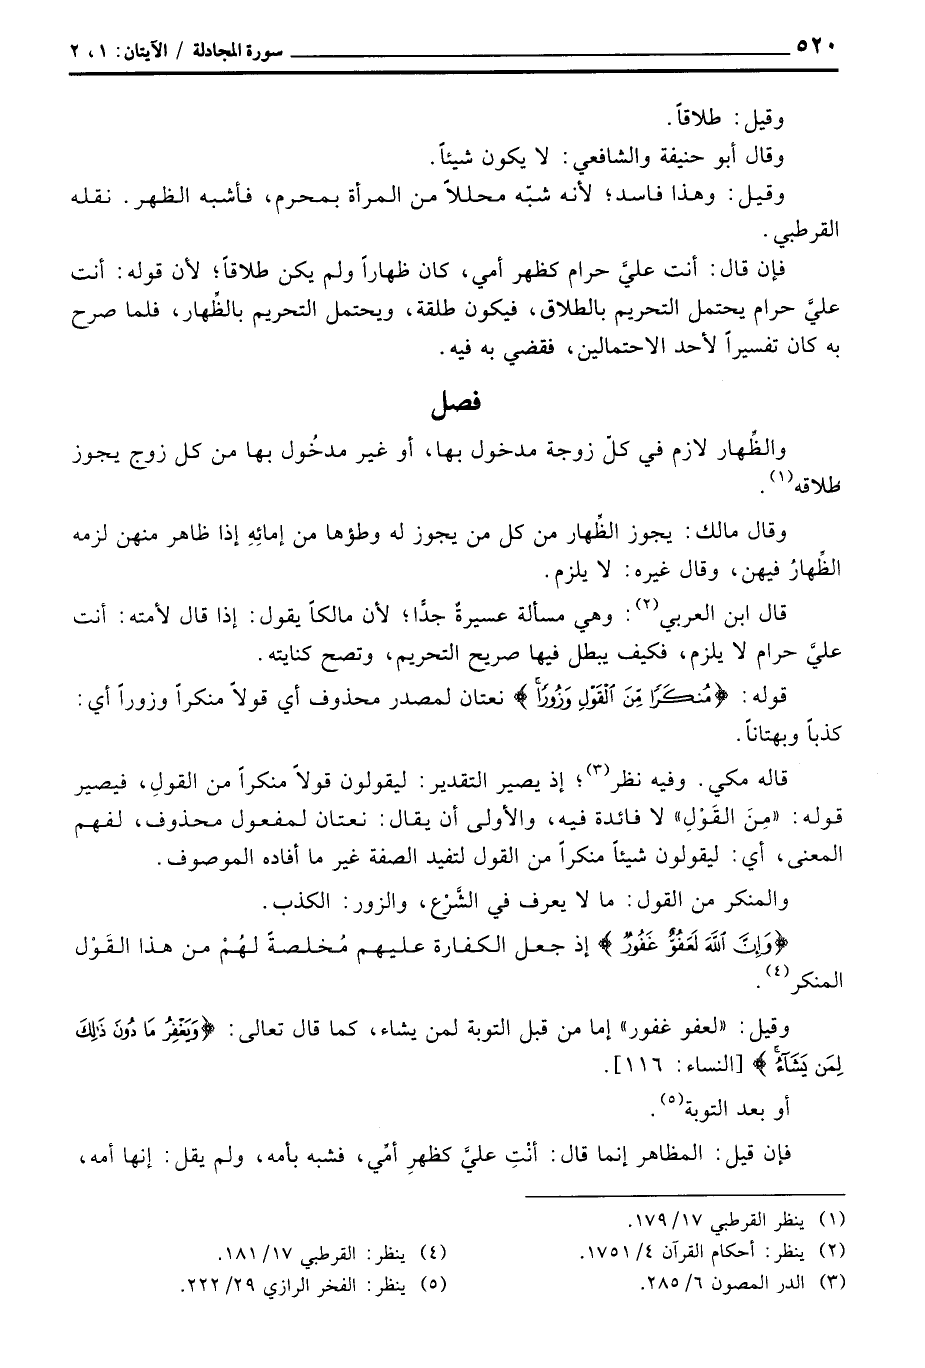 ٥٢٠ سورة المجادلة / الآيتان: ١ ، ٢
وقيل: طلاقاً.
وقال أبو حنيفة والشافعي: لا يكون شيئاً.
وقيل: وهذا فاسد؛ لأنه شبّه محللاً من المرأة بمحرم، فأشبه الظهر. نقله
القرطبي.
فإن قال: أنت عليَّ حرام كظهر أمي، كان ظهاراً ولم يكن طلاقاً؛ لأن قوله: أنت
عليَّ حرام يحتمل التحريم بالطلاق، فيكون طلقة، ويحتمل التحريم بالظِّهار، فلما صرح
به كان تفسيراً لأحد الاحتمالين، فقضي به فيه.
فصل
والظِّهار لازم في كلّ زوجة مدخول بها، أو غير مدخُول بها من كل زوج يجوز
طلاقه(١).
وقال مالك: يجوز الظِّهار من كل من يجوز له وطؤها من إمائِهِ إذا ظاهر منهن لزمه
الظِّهارُ فيهن، وقال غيره: لا يلزم.
قال ابن العربي(٢): وهي مسألة عسيرةٌ جدًّا؛ لأن مالكاً يقول: إذا قال لأمته: أنت
عليَّ حرام لا يلزم، فكيف يبطل فيها صريح التحريم، وتصح كنايته.
قوله: ﴿مُنكَرًا مِّنَ ٱلْقَوْلِ وَزُورًاۚ﴾ نعتان لمصدر محذوف أي قولاً منكراً وزوراً أي:
كذباً وبهتاناً.
قاله مكي. وفيه نظر(٣)؛ إذ يصير التقدير: ليقولون قولاً منكراً من القولِ، فيصير
قوله: «مِنَ القَوْلِ» لا فائدة فيه، والأولى أن يقال: نعتان لمفعول محذوف، لفهم
المعنى، أي: ليقولون شيئاً منكراً من القول لتفيد الصفة غير ما أفاده الموصوف.
والمنكر من القول: ما لا يعرف في الشَّرْع، والزور: الكذب.
﴿وَإِنَّ ٱللَّهَ لَعَفُوٌّ غَفُورٌ﴾ إذ جعل الكفارة عليهم مُخلصةً لهُمْ من هذا القَوْل
المنكر(٤).
وقيل: «لعفو غفور» إما من قبل التوبة لمن يشاء، كما قال تعالى: ﴿وَيَغْفِرُ مَا دُونَ ذَٰلِكَ
لِمَن يَشَآءُۚ﴾ [النساء: ١١٦].
أو بعد التوبة(٥).
فإن قيل: المظاهر إنما قال: أنْتِ عليَّ كظهرِ أمِّي، فشبه بأمه، ولم يقل: إنها أمه،
(١) ينظر القرطبي ١٧٩/١٧.
(٢) ينظر: أحكام القرآن ٤/ ١٧٥١.
(٣) الدر المصون ٢٨٥/٦.
(٤) ينظر: القرطبي ١٨١/١٧.
(٥) ينظر: الفخر الرازي ٢٢٢/٢٩.